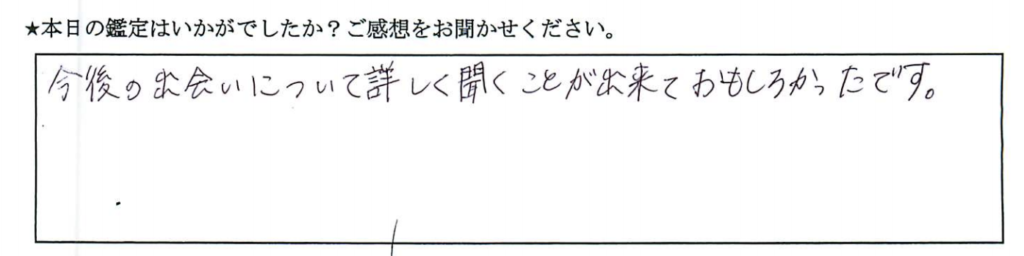 ★本日の鑑定はいかがでしたか？ご感想をお聞かせください。
今後の出会いについて詳しく聞くことが出来ておもしろかったです。